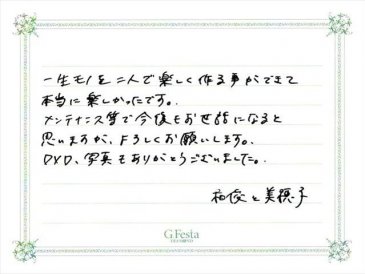 一生モノを二人で楽しく作る事ができて
本当に楽しかったです。
メンテナンス等で今後もお世話になると
思いますが、よろしくお願いします。
DVD、写真もありがとうございました。
と美穂子
G.Festa